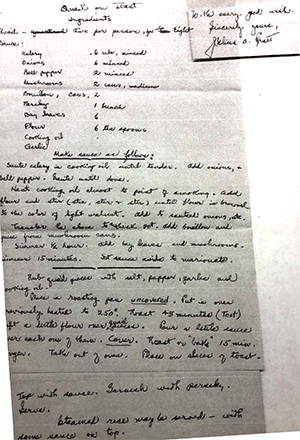 Quail on Toast
Ingredients
With every good wish.
Sincerely yours,
Quail - two per person, for eight
Sauce:
Celery 6 ribs, minced
Onions 6 minced
Bell pepper 2 minced
Mushrooms 2 cans, medium
Bouillon, cans, 2
Parsley 1 bunch
Bay leaves 6
Flour 6 tbs spoons
Cooking oil
Garlic
Make sauce as follows:
Saute celery in cooking oil until tender. Add onions, &
bell pepper. Saute until done.
Heat cooking oil almost to point of smoking. Add
flour and stir (stir, stir & stir) until flour is browned
to the color of light walnut. Add to sauteed onions, etc.
Transfer to above to pot. Add bouillon and
juice from mushroom cans.
Simmer 1/2 hour. Add bay leaves and mushrooms.
Simmer 15 minutes. Set sauce aside to marinate.
Rub quail pieces with salt, pepper, garlic and
cooking oil.
Place in roasting pan uncovered. Put in oven
previously heated to 250°. Roast 45 minutes (Test)
a little flour over pieces. Pour a little sauce
over each one of them. Cover. Roast or bake 15 min.
longer. Take out of oven. Place on slices of toast.
Top with sauce. Garnish with parsley.
Serve.
Steamed rice may be served - with
some sauce on top.